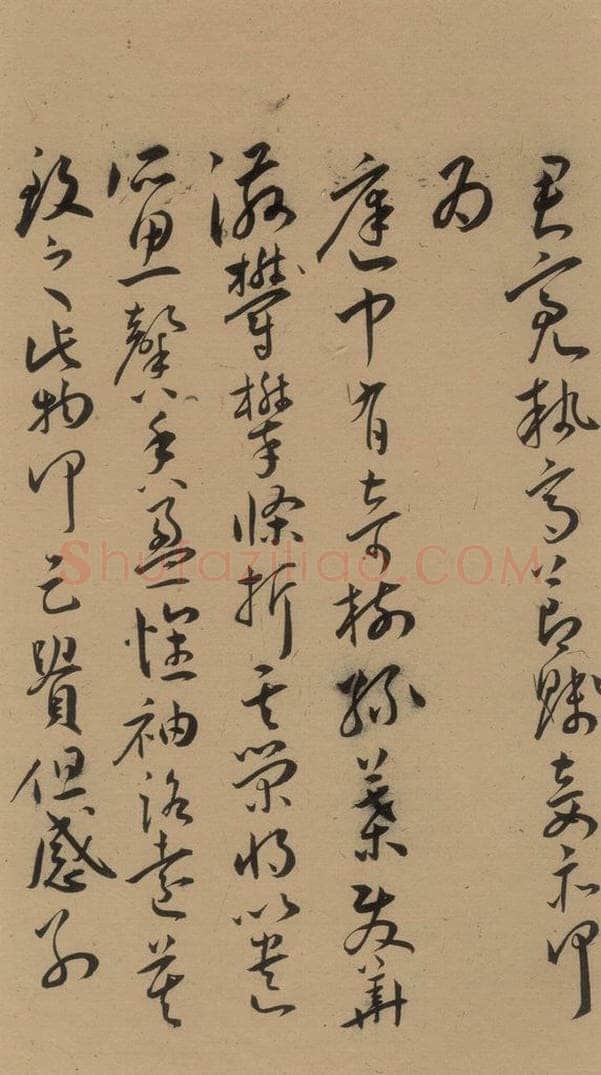 君亮執高節賤妾亦何
為
庭中有奇樹綠葉發華
滋攀攀條折其榮將以遺
所思馨香盈懷袖路遠莫
致之此物何足貴但感別
Shufaziliao.COM